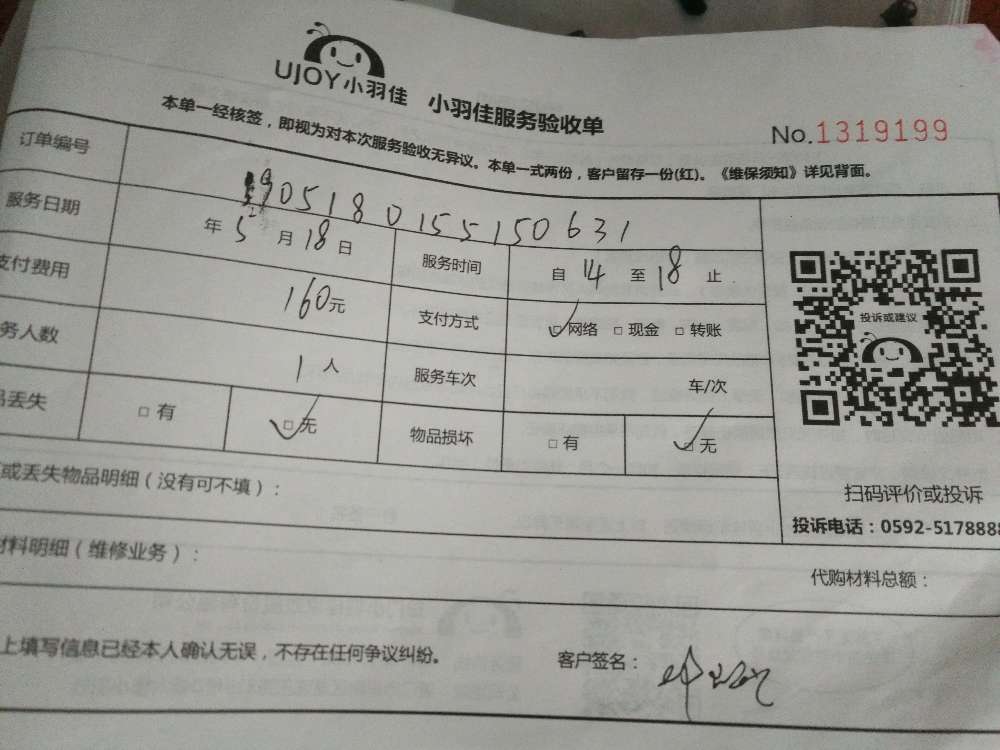 UJOY小羽佳 小羽佳服务验收单
No.1319199
本单一经核签，即视为对本次服务验收无异议。本单一式两份，客户留存一份(红)。《维保须知》详见背面。
订单编号 190518015515​0631
服务日期 年 5 月 18 日 服务时间 自 14 至 18 止
支付费用 160元 支付方式 网络 现金 转账
务人数 1 人 服务车次 车/次
丢失 有 无 物品损坏 有 无
投诉或建议
扫码评价或投诉
投诉电话：0592-5178888
或丢失物品明细（没有可不填）：
材料明细（维修业务）：
代购材料总额：
上填写信息已经本人确认无误，不存在任何争议纠纷。 客户签名：